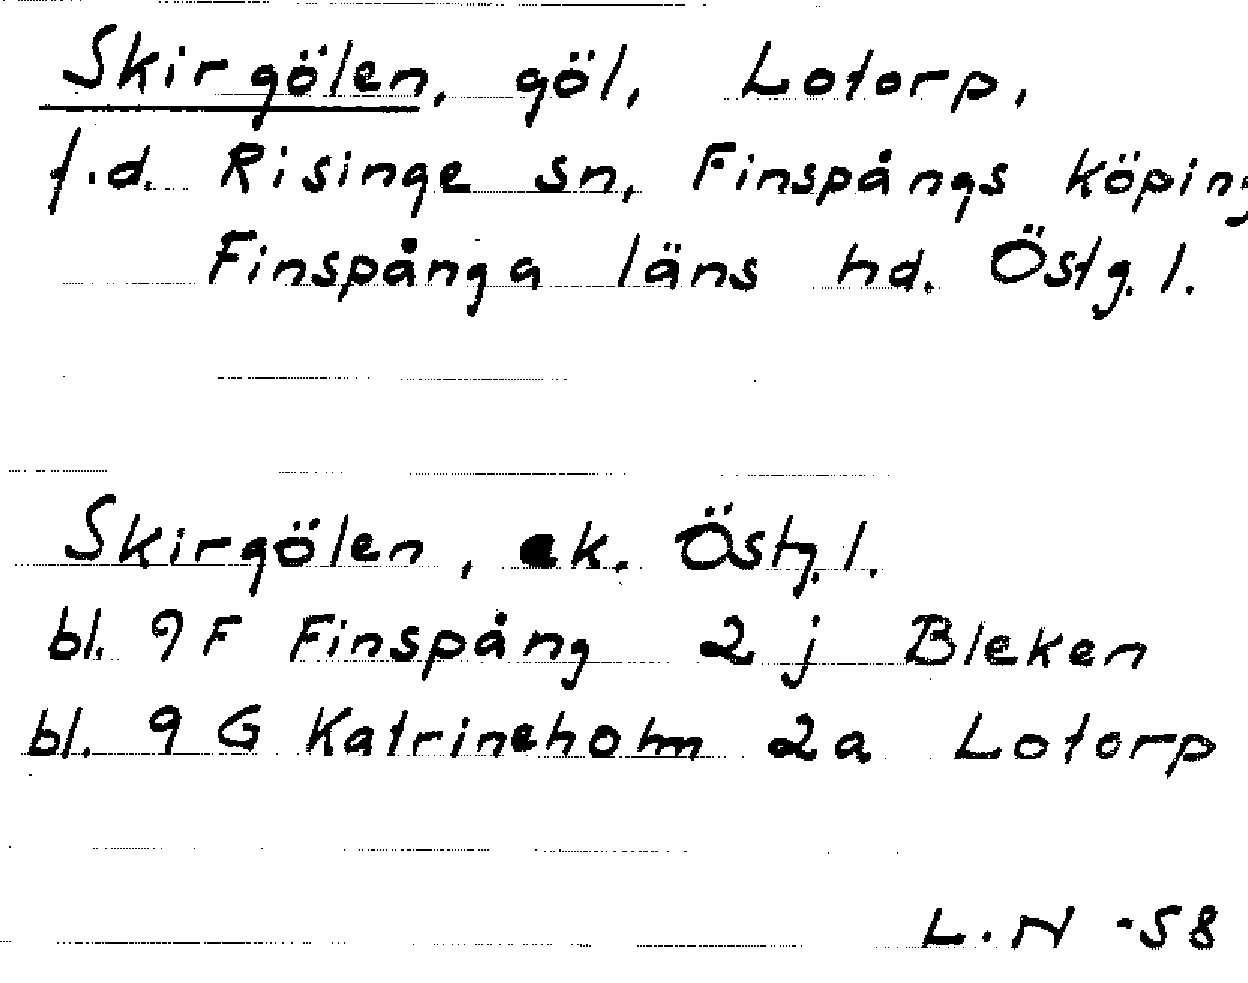 Skirgölen, göl, Lotorp,
f.d. Risinge sn, Finspångs köping
Finspånga läns hd. Östg. l.
Skirgölen, ek. Östg. l.
bl. 9 F Finspång 2 j Bleken
bl. 9 G Katrineholm 2a Lotorp
L. N -58